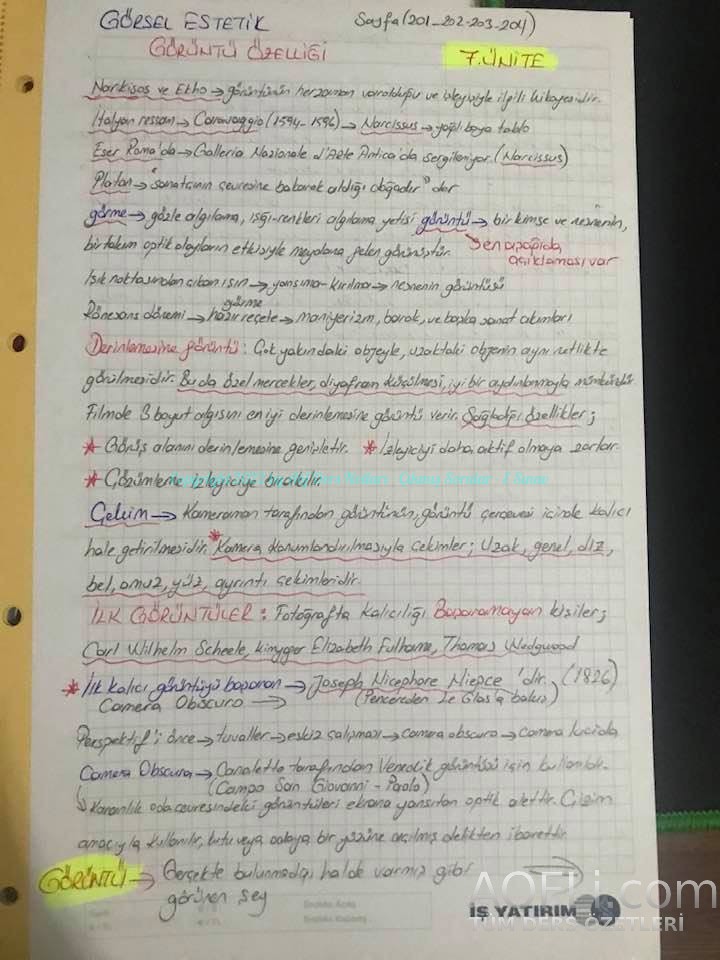 GÖRSEL ESTETİK Sayfa (201-202-203-204)
GÖRÜNTÜ ÖZELLİĞİ 7. ÜNİTE
Narkisos ve Ekho → görüntünün herzaman varolduğu ve izleyiciyle ilgili hikayesidir.
İtalyan ressam → Caravaggio (1594-1596) → Narcissus → yağlı boya tablo
Eser Roma'da → Galleria Nazionale d'Arte Antica'da sergileniyor. (Narcissus)
Platon → "sanatçının çevresine bakarak aldığı doğadır" der
görme → gözle algılama, ışığı-renkleri algılama yetisi görüntü → bir kimse ve nesnenin,
birtakım optik olayların etkisiyle meydana gelen görünüştür. en aşağıda
açıklaması var
Işık noktasından çıkan ışın → yansıma-kırılma → nesnenin görüntüsü
görme
Rönesans dönemi → hazır reçete → maniyerizm, barok, ve başka sanat akımları
Derinlemesine görüntü: Çok yakındaki objeyle, uzaktaki objenin aynı netlikte
görülmesidir. Bu da özel mercekler, diyafram küçülmesi, iyi bir aydınlanmayla mümkündür.
Filmde 3 boyut algısını en iyi derinlemesine görüntü verir. Sağladığı özellikler;
* Görüş alanını derinlemesine genişletir. * İzleyiciyi daha aktif olmaya zorlar.
* Çözümleme izleyiciye bırakılır.
Çekim → Kameraman tarafından görüntünün, görüntü çerçevesi içinde kalıcı
hale getirilmesidir. * Kamera konumlandırılmasıyla çekimler; Uzak, genel, diz,
bel, omuz, yüz, ayrıntı çekimleridir.
İLK GÖRÜNTÜLER: Fotoğrafta Kalıcılığı Başaramayan kişiler;
Carl Wilhelm Scheele, kimyager Elizabeth Fulhame, Thomas Wedgwood
* İlk kalıcı görüntüyü başaran → Joseph Nicephore Niepce 'dir. (1826)
Camera Obscura → (Pencereden Le Glas'a bakış)
Perspektif; önce → tuvaller → eskiz çalışması → camera obscura → camera lucida
Camera Obscura → Canaletto tarafından Venedik görüntüsü için kullanıldı.
(Campo San Giovanni - Paolo)
Karanlık oda çevresindeki görüntüleri ekrana yansıtan optik alettir. Çizim
amacıyla kullanılır, kutu veya odaya bir yüzüne açılmış delikten ibarettir.
GÖRÜNTÜ → Gerçekte bulunmadığı halde varmış gibi
görünen şey
İŞ YATIRIM
AOFLi.com
TÜM DERS ÖZETLERİ